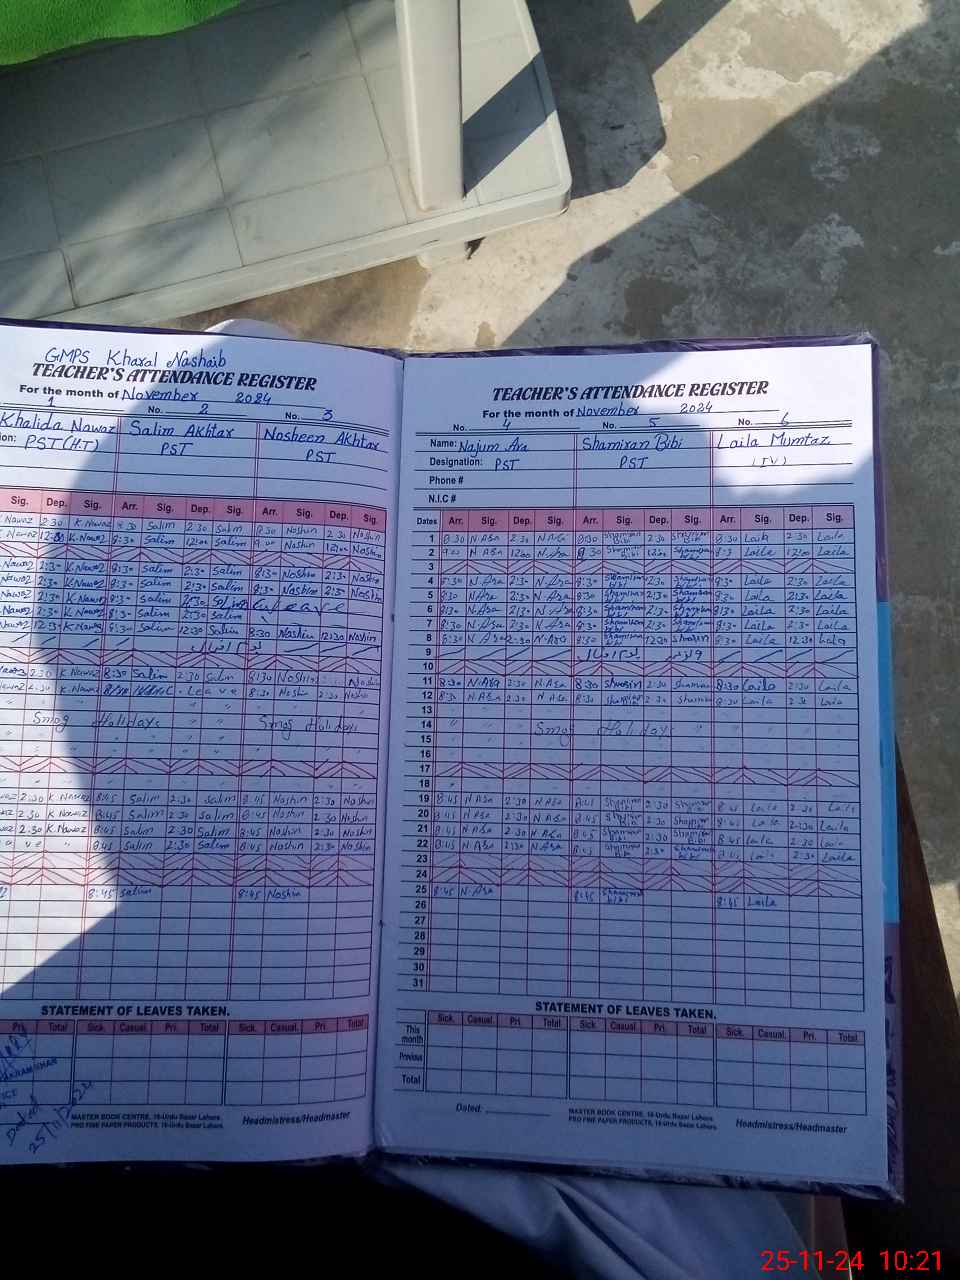 GMPS Kharal Nashaib
TEACHER'S ATTENDANCE REGISTER
For the month of November 2024
1 No. 2 No. 3
Khalida Nawaz Salim Akhtar Nosheen Akhtar
tion: PST (H.T) PST PST
Sig. Dep. Sig. Arr. Sig. Dep. Sig. Arr. Sig. Dep. Sig.
Nawaz 2:30 K.Nawaz 8:30 Salim 2:30 Salim 8:30 Noshin 2:30 Noshin
K.Nawaz 8:30 Salim 12:00 Salim 9:00 Noshin 12:00 Noshin
Nawaz 2:30 K.Nawaz 8:30 Salim 2:30 Salim 8:30 Noshin 2:30 Noshin
Nawaz 2:30 K.Nawaz 8:30 Salim 2:30 Salim 8:30 Noshin 2:30 Noshin
Nawaz 2:30 K.Nawaz 8:30 Salim 2:30 Leave
Nawaz 2:30 K.Nawaz 8:30 Salim 2:30 Salim
Nawaz 12:30 K.Nawaz 8:30 Salim 12:30 Salim 8:30 Noshin 12:30 Noshin
2:30 K Nawaz 8:30 Salim 2:30 Salim 8:30 Noshin Noshin
K Nawaz Leave 8:30 Noshin 2:30 Noshin
Smog Holidays Smog Holidays
2:30 K Nawaz 8:45 Salim 2:30 Salim 8:45 Noshin 2:30 Noshin
2:30 K Nawaz 8:45 Salim 2:30 Salim 8:45 Noshin 2:30 Noshin
2:30 K Nawaz 8:45 Salim 2:30 Salim 8:45 Noshin 2:30 Noshin
8:45 Salim 2:30 Salim 8:45 Noshin 2:30 Noshin
8:45 Salim 8:45 Noshin
STATEMENT OF LEAVES TAKEN.
Pri. Total Sick. Casual. Pri. Total Sick. Casual. Pri. Total
25/11/2024
MASTER BOOK CENTRE, 16-Urdu Bazar Lahore.
PRO FINE PAPER PRODUCTS, 16-Urdu Bazar Lahore.
Headmistress/Headmaster
TEACHER'S ATTENDANCE REGISTER
For the month of November 2024
No. 4 No. 5 No. 6
Name: Najum Ara Shamiran Bibi Laila Mumtaz
Designation: PST PST (IV)
Phone #
N.I.C #
Dates Arr. Sig. Dep. Sig. Arr. Sig. Dep. Sig. Arr. Sig. Dep. Sig.
1 8:30 N Ara 2:30 N Ara 8:30 Shamiran Bibi 2:30 Shamiran Bibi 8:30 Laila 2:30 Laila
2 9:00 N Ara 12:00 N.Ara 8:30 Shamiran Bibi 12:00 Shamiran Bibi Laila 12:00 Laila
3
4 8:30 N.Ara 2:30 N.Ara 8:30 Shamiran bibi 2:30 Shamiran bibi 8:30 Laila 2:30 Laila
5 8:30 N.Ara 2:30 N.Ara 8:30 Shamiran bibi 2:30 Shamiran bibi 8:30 Laila 2:30 Laila
6 8:30 N.Ara 2:30 N.Ara 8:30 Shamiran bibi 2:30 Shamiran bibi 8:30 Laila 2:30 Laila
7 8:30 N.Ara 2:30 N.Ara 8:30 Shamiran bibi 2:30 Shamiran bibi 8:30 Laila 2:30 Laila
8 8:30 N Ara N.Ara 8:30 Shamiran bibi 12:30 8:30 Laila 12:30 Laila
9
10
11 8:30 N.Ara 2:30 N.Ara 8:30 2:30 8:30 Laila 2:30 Laila
12 8:30 N.Ara 2:30 N Ara 8:30 2:30 8:30 Laila 2:30 Laila
13
14 Smog Holiday
15
16
17
18
19 8:45 N Ara 2:30 N Ara 8:45 Shamiran bibi 2:30 Shamiran bibi 8:45 Laila 2:30 Laila
20 8:45 N Ara 2:30 N Ara 8:45 Shamiran bibi 2:30 Shamiran bibi 8:45 Laila 2:30 Laila
21 8:45 N Ara 2:30 N Ara 8:45 Shamiran bibi 2:30 Shamiran bibi 8:45 Laila 2:30 Laila
22 8:45 N.Ara 2:30 N.Ara 8:45 Shamiran bibi 2:30 Shamiran bibi 8:45 Laila 2:30 Laila
23
24
25 8:45 N.Ara 8:45 Shamiran bibi 8:45 Laila
26
27
28
29
30
31
STATEMENT OF LEAVES TAKEN.
Sick. Casual. Pri. Total Sick. Casual. Pri. Total Sick. Casual. Pri. Total
This month
Previous
Total
Dated:
MASTER BOOK CENTRE, 16-Urdu Bazar Lahore.
PRO FINE PAPER PRODUCTS, 16-Urdu Bazar Lahore.
Headmistress/Headmaster
25-11-24 10:21